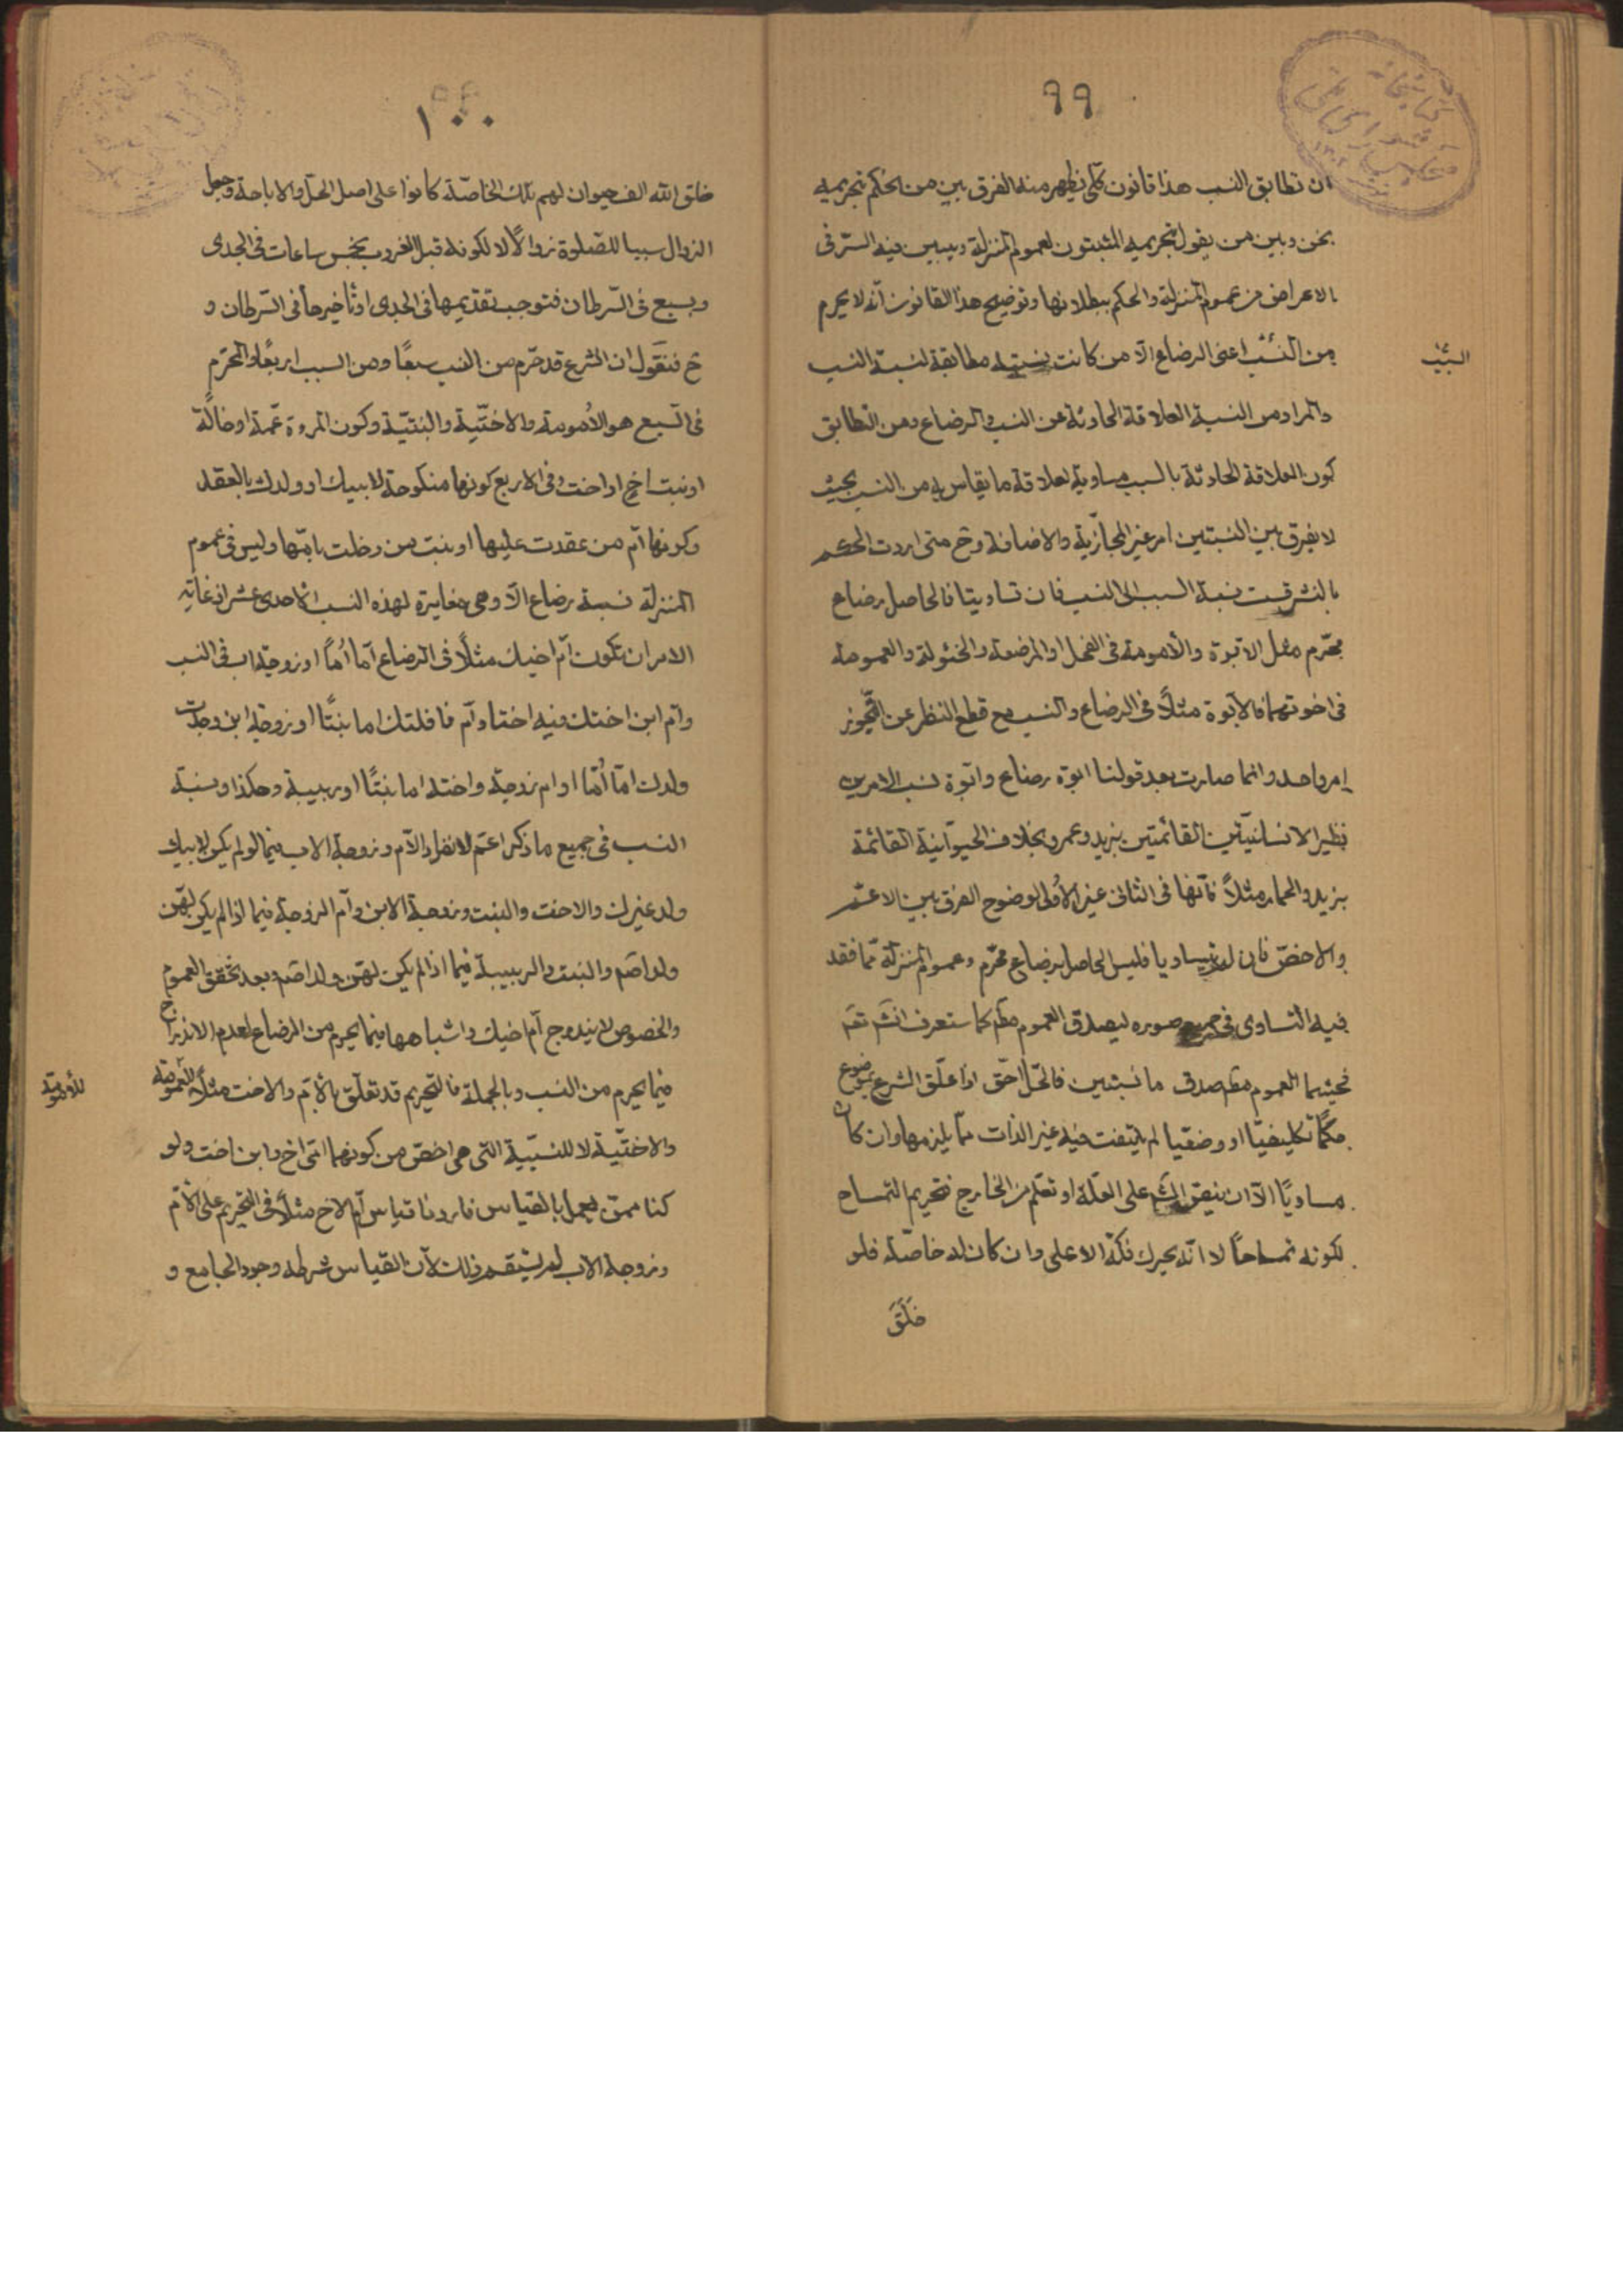 ٩٩
ان تطابق النسب هذا قانون كلّى يظهر منه الفرق بين من يحكم بتحريمه
نحن وبين من يقول بتحريمه المثبتون لعموم المنزلة ويبين فيه السّر فى
الاعراض من عموم المنزلة والحكم ببطلانها وتوضيح هذا القانون انّه لا يحرم
من اعنى الرضاع الّا من كانت نسبته مطابقة لنسبة النسب
السّبب
والمراد من النسبة العلاقة الحادثة من النسب والرضاع ومن التطابق
كون العلاقة الحادثة بالسبب مساوية لعلاقة ما يقاس به من النسب بحيث
لا يفرق بين النسبتين امر غير المجازية والاضافة وح متى اردت الحكم
بالنشر قست نسبة السبب الى النسب فان تساويتا فالحاصل رضاع
محرّم مثل الابّوة والأمومة فى الفحل او المرضعة والخئولة والعمومة
فى اخوتهما فالابّوة مثلًا فى الرضاع والنسب مع قطع النظر عن التّجوز
امر واحد وانما صارت بعد قولنا ابوّة رضاع وابوّة نسب الامرين
نظير الانسانيّتين القائمتين بزيد وعمرو بخلاف الحيوانية القائمة
بزيد والحمار مثلًا فانّها فى الثانى غير الأولى لوضوح الفرق بين الاعّم
والاخصّ فان لم يتساويا فليس الحاصل برضاع محرّم وعموم المنزلة ممّا فقد
فيه التساوى فى جميع صوره ليصدق العموم مظم كما ستعرف انشم تعم
فحيثما العموم مظم صدق ما نسبتين فالحّل احّق اذا علّق الشرع بموضوع
حكمًا تكليفيّا او وضعيّا لم يلتفت فيه غير الذات ممّا يلزمها وان كان
مساويًا الّا ان ينصّ الشم على العلّة او تعلم من الخارج فتحريم التمساح
لكونه تمساحًا لا انّه يحرك فكّه الاعلى وان كان له خاصّة فلو
خَلَقَ
١٠٠
خلق الله الف حيوان لهم تلك الخاصّة كانوا على اصل الحلّ والاباحة وجعل
الزوال سببا للصّلوة زوالًا لا لكونه قبل الغروب بخمس ساعات فى الجدى
وبسبع فى السّرطان فتوجب تقديمها فى الجدى او تاخيرها فى السّرطان و
ح فنقول ان الشرع قد حرّم من النسب سبعًا ومن السبب اربعًا والمحرّم
فى السّبع هو الأمومة والاختّية والبنتيّة وكون المرءة عّمة او خالّة
او بنت اخ او اخت وفى الاربع كونها منكوحة لابيك او ولدك بالعقد
وكونها امّ من عقدت عليها او بنت من دخلت بامّها وليس فى عموم
المنزلة نسبة رضاع الّا وهى مغايرة لهذه النسب الأحدى عشر اذ غاية
الامر ان تكون امّ اخيك مثلًا فى الرضاع امّا أمًا او زوجة اب فى النسب
وام ابن اختك فيه اختا وامّ نافلتك اما بنتًا او زوجة ابن وجدّت
ولدك امّا أمّا او ام زوجة واخته اما بنتًا او ربيبة وهكذا ونسبة
النسب فى جميع ما ذكر اعّم لانفراد الأم وزوجة الاب فيما لو لم يكن لابيك
ولد غيرك والاخت والبنت وزوجة الابن وامّ الزوجة فيما اذا لم يكن لهّن
ولد اصّم والبنت والربيبة فيما اذا لم يكن لهّن ولد اصّم وبعد تحقّق العموم
والخصوص لا يندرج امّ اخيك واشباهها فيما يحرم من الرضاع لعدم الاندراج
فيما يحرم من النسب وبالجملة فالتّحريم قد تعلّق بالأم والاخت مثلًا
للأمومّة
والاختّية لا للنسّبية التى هى اخصّ من كونهما امّى اخ وابن اخت ولو
كنا ممن يعمل بالقياس فاردنا قياس امّ الاخ مثلًا فى التّحريم على الأمّ
وزوجة الاب لم يستقم ذلك لأن القياس شرطه وجود الجامع و